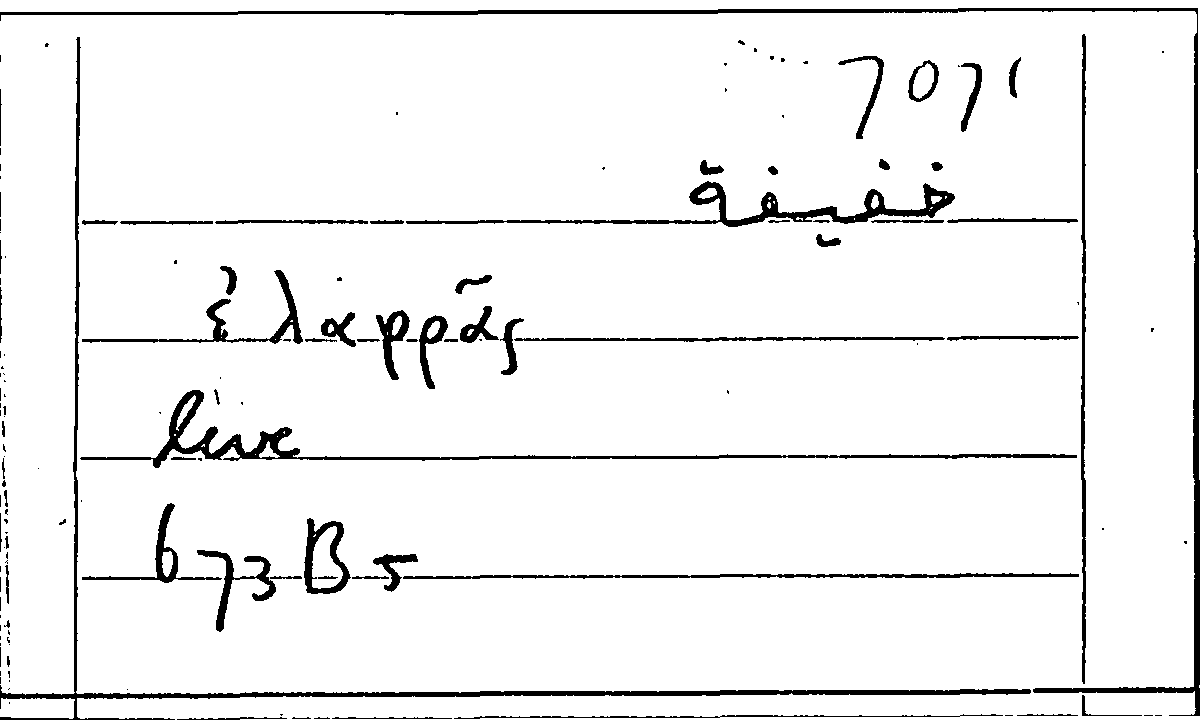 7071
خفيفة
ἐλαφρᾶς
leve
673B5